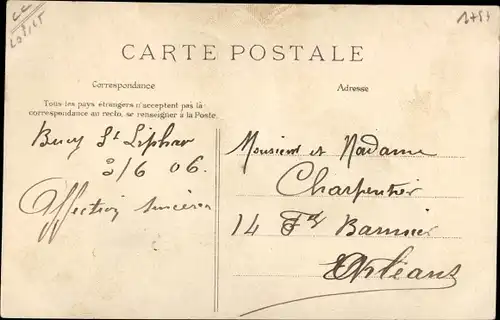 CARTE POSTALE
Correspondance
Adresse
Tous les pays étrangers n'acceptent pas la
correspondance au recto, se renseigner à la Poste.
Bucy St Liphar
3/6 06.
Affection sincère
Monsieur et Madame
Charpentier
14 Fg Bannier
Orléans